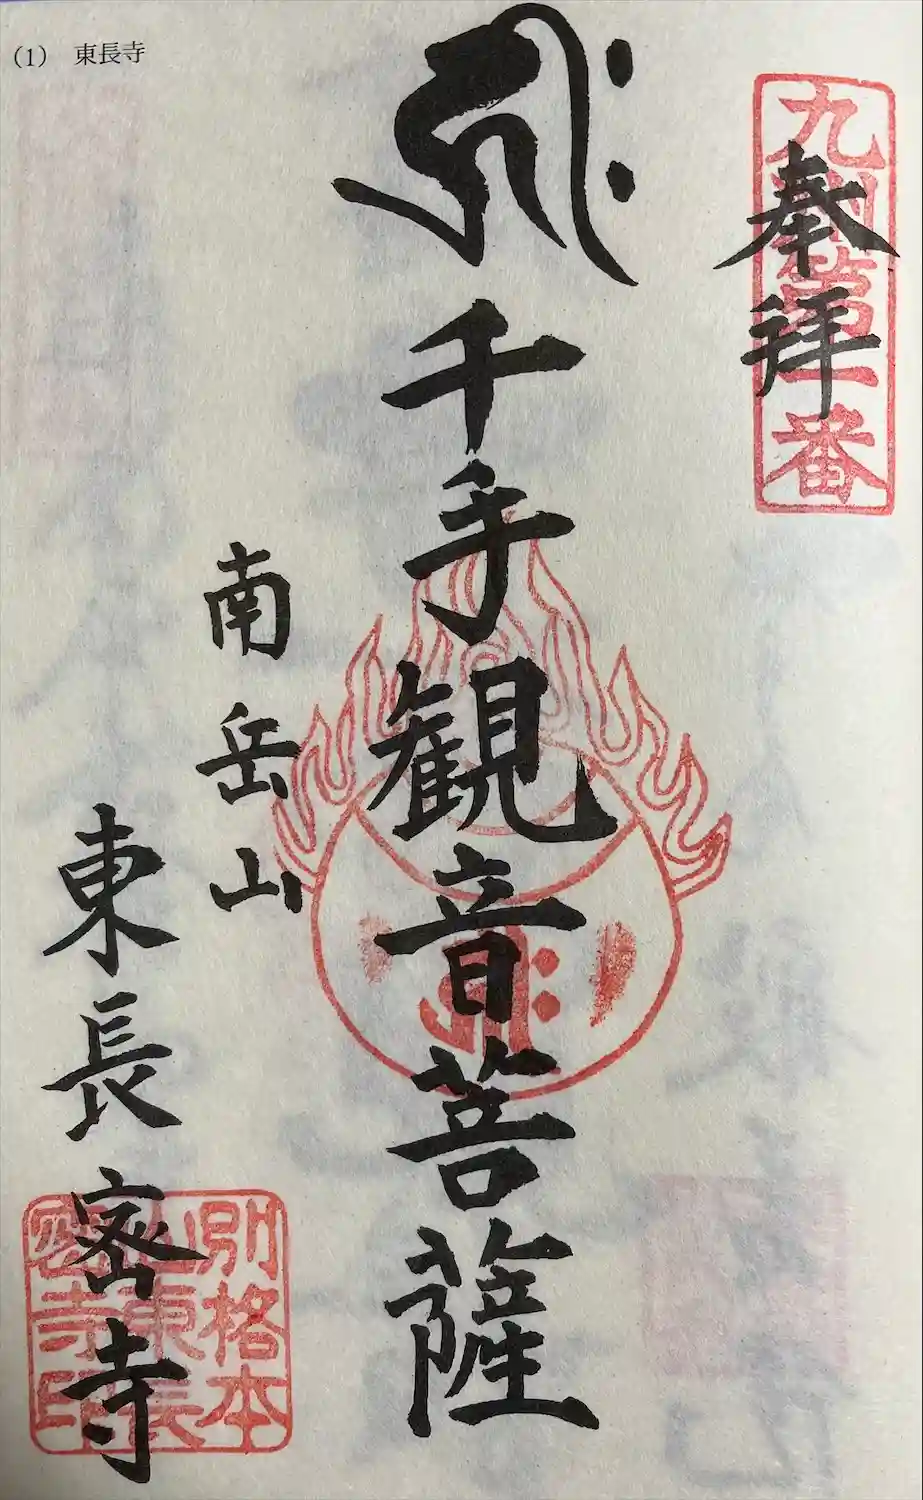 (1) 東長寺
奉拝
九州第一番
𑖮𑖿𑖨𑖱𑖾
千手観音菩薩
𑖮𑖿𑖨𑖱𑖾
南岳山
東長密寺
別格本
山東長
密寺印